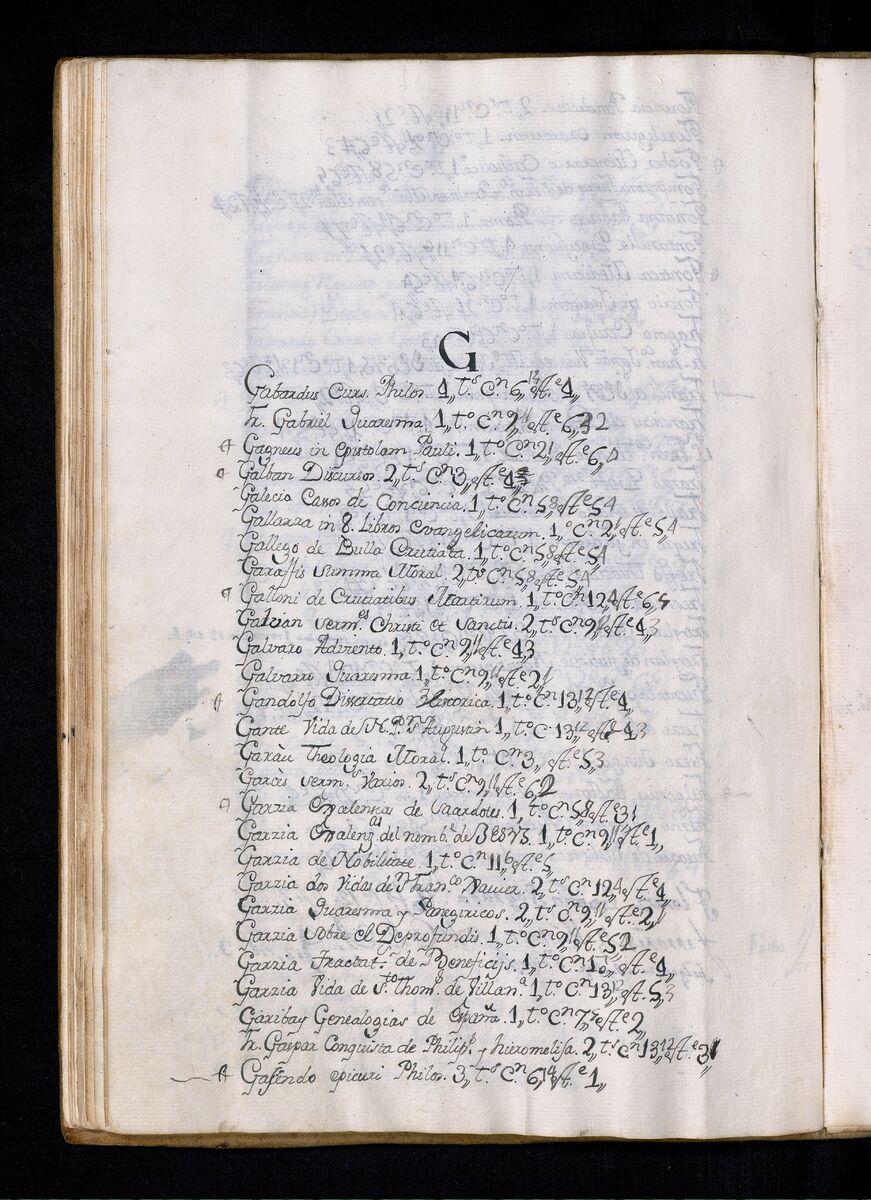 G
Gabardus Curs. Philos. 4,, t.s C.n 6,, 13 est.e 4,,
fr. Gabriel Quaresma 1,, t.o C.n 9,, 11 est.e 6,, 2
Gagneus in Epistolam Pauli. 1,, t.o C.n 2,, 1 est.e 6,,
Galban Discursos. 2,, t.s C.n 3,, est.e 4
Galecio Casos de Conciencia. 1,, t.o C.n 5,, 8 est.e 5 4
Gallarza in 8. Libros Evangelicarum. 1,, o C.n 2,, 1 est.e 5,, 4
Gallego de Bulla Cruciata. 1,, t.o C.n 5,, 8 est.e 5 4
Garaffis summa Moral. 2,, t.os C.n 5,, 8 est.e 5 4
Galloni de Cruciatibus Martirum. 1,, t.o C.n 12,, 4 est.e 6,,
Galcian serm.es Christi et Sanctis. 2,, t.s C.n 9,, 11 est.e 4,, 3
Galvaro Adviento. 1,, t.o C.n 9,, 11 est.e 4,, 3
Galvarro Quaresma. 1,, t.o C.n 9,, 11 est.e 2,, 1
Gandolfo Dissertatio Historica. 1,, t.o C.n 13,, 12 est.e 4,,
Gante Vida de S. N. P. S. Augustin 1,, t.o C. 13,, 12 4 3
Garàu Theologia Moral. 1,, t.o C.n 3,, est.e 5,, 3
Garcès serm.s Varios. 2,, t.s C.n 9,, 11 est.e 6,, 2
Garzia de Sacerdotes. 1,, t.o C.n 5,, 8 est.e 3 1
Garzia del nomb.e de 1,, t.o C.n 9,, 11 est.e 1,,
Garzia de Nobilitate. 1,, t.o C.n 11,, 6 est.e 5,,
Garzia dos Vidas de S. Fran.co Xavier. 2,, t.s C.n 12,, 4 est.e 4,,
Garzia Quaresma y Panegiricos. 2,, t.s C.n 9,, 11 est.e 2,, 1
Garzia sobre el Deprofundis. 1,, t.o C.n 9,, 11 est.e 5 2
Garzia Tractat.s de Beneficijs. 1,, t.o C.n 1 est.e 4,,
Garzia Vida de S.to Thom.s de Villan.a 1,, t.o C.n 13,, 12 est. 5,, 3
Garibay Genealogias de España. 1,, t.o C.n 7,, est.e 2,,
fr. Gaspar Conquista de Philip.s y hieromelisa. 2,, t.s C.n 13,, 12 est.e 3
Gassendo epicuri Philos. 3,, t.s C.n 6,, 14 est.e 1,,